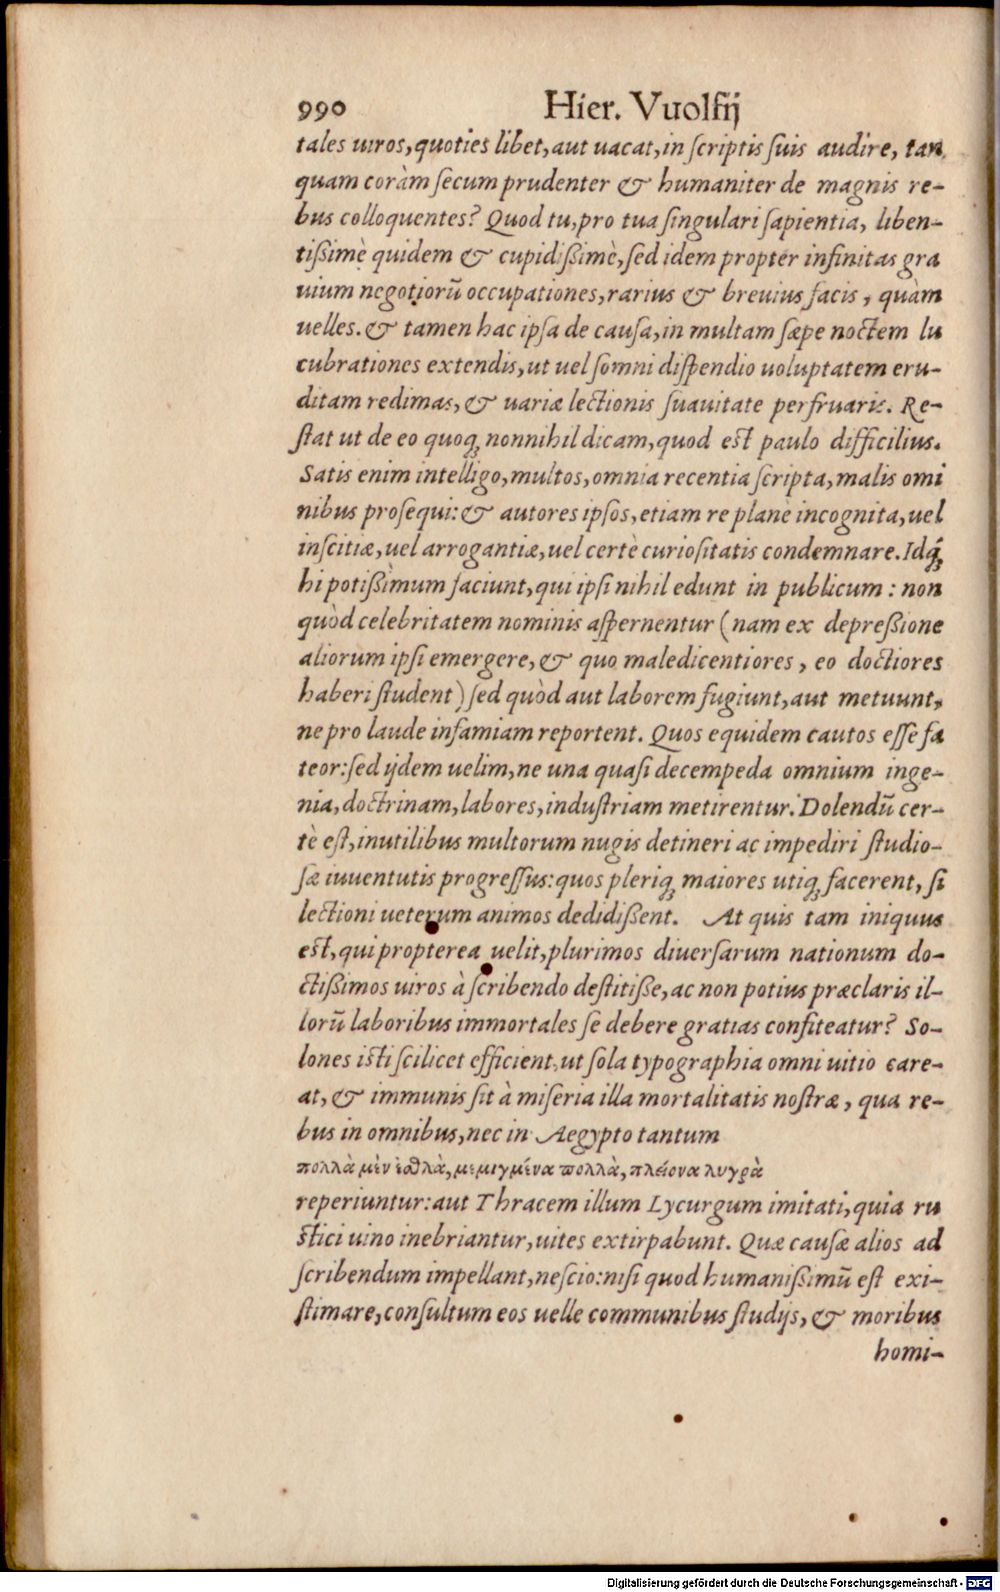 990 Hier. Vuolfij
tales uiros, quoties libet, aut uacat, in scriptis suis audire, tan
quam coràm secum prudenter & humaniter de magnis re-
bus colloquentes? Quod tu, pro tua singulari sapientia, liben-
tißimè quidem & cupidißimè, sed idem propter infinitas gra
uium negotiorũ occupationes, rarius & breuius facis, quàm
uelles. & tamen hac ipsa de causa, in multam sæpe noctem lu
cubrationes extendis, ut uel somni dispendio uoluptatem eru-
ditam redimas, & uariæ lectionis suauitate perfruaris. Re-
stat ut de eo quoq́ꝫ nonnihil dicam, quod est paulo difficilius.
Satis enim intelligo, multos, omnia recentia scripta, malis omi
nibus prosequi: & autores ipsos, etiam re planè incognita, uel
inscitiæ, uel arrogantiæ, uel certè curiositatis condemnare. Idq́ꝫ
hi potißimum faciunt, qui ipsi nihil edunt in publicum: non
quòd celebritatem nominis aspernentur (nam ex depreßione
aliorum ipsi emergere, & quo maledicentiores, eo doctiores
haberi student) sed quòd aut laborem fugiunt, aut metuunt,
ne pro laude infamiam reportent. Quos equidem cautos esse fa
teor: sed ijdem uelim, ne una quasi decempeda omnium inge-
nia, doctrinam, labores, industriam metirentur. Dolendũ cer-
tè est, inutilibus multorum nugis detineri ac impediri studio-
sæ iuuentutis progressus: quos pleriqꝫ maiores utiqꝫ facerent, si
lectioni ueterum animos dedidißent. At quis tam iniquus
est, qui propterea uelit, plurimos diuersarum nationum do-
ctißimos uiros à scribendo destitiße, ac non potius præclaris il-
lorũ laboribus immortales se debere gratias confiteatur? So-
lones isti scilicet efficient, ut sola typographia omni uitio care-
at, & immunis sit à miseria illa mortalitatis nostræ, qua re-
bus in omnibus, nec in Aegypto tantum
πολλὰ μὲν ἐσθλὰ, μεμιγμένα πολλὰ, πλείονα λυγρὰ
reperiuntur: aut Thracem illum Lycurgum imitati, quia ru
stici uino inebriantur, uites extirpabunt. Quæ causæ alios ad
scribendum impellant, nescio: nisi quod humanißimũ est exi-
stimare, consultum eos uelle communibus studijs, & moribus
homi-
Digitalisierung gefördert durch die Deutsche Forschungsgemeinschaft - DFG